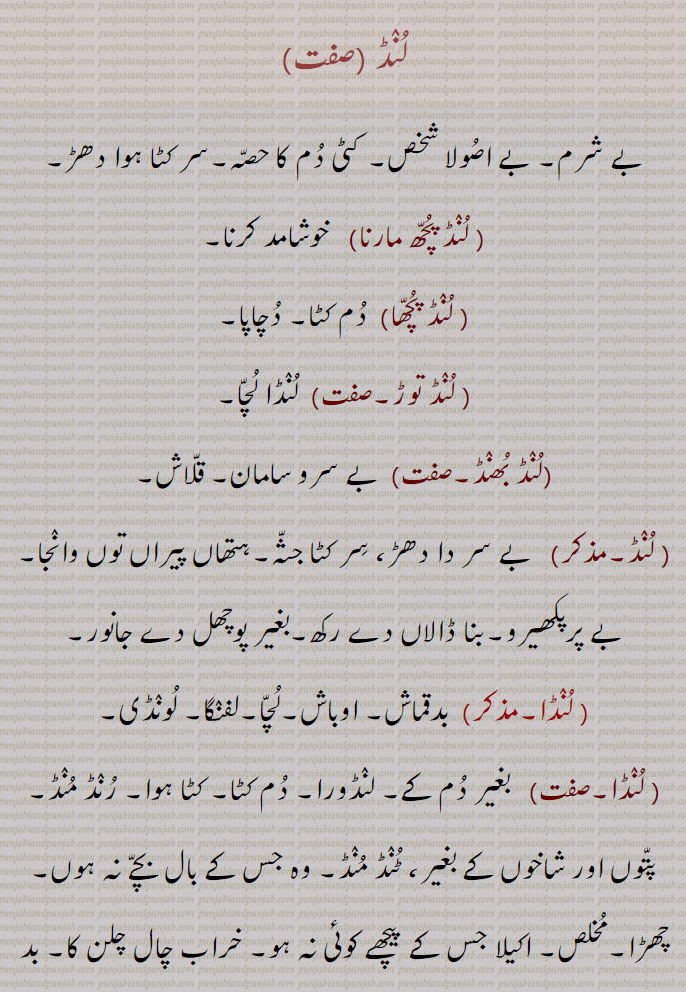 لُنْڈ (صفت)
بے شرم۔ بے اصُولا شخص۔ کٹی دُم کا حصّہ۔ سر کٹا ہوا دھڑ۔
(لُنْڈ پُچّھ مارنا) خوشامد کرنا۔
(لُنْڈ پُچّھا) دُم کٹا۔ دُچاپا۔
(لُنْڈ توڑ۔صفت) لُنْڈا لُچّا۔
(لُنْڈ بُھنْڈ۔صفت) بے سر و سامان۔ قلّاش۔
(لُنْڈ۔مذکر) بے سر دا دھڑ، سِر کٹا جثّہ۔ ہتھاں پیراں توں وانْجا۔
بے پر پکھیرو۔ بنا ڈالاں دے رکھ۔ بغیر پوچھل دے جانور۔
(لُنْڈا۔مذکر) بدقماش۔ اوباش۔ لُچّا۔ لفنْگا۔ لُونْڈی۔
(لُنْڈا۔صفت) بغیر دُم کے۔ لنْڈورا۔ دُم کٹا۔ کٹا ہوا۔ رُنْڈ مُنْڈ۔
پتّوں اور شاخوں کے بغیر، ٹُنْڈ مُنْڈ۔ وہ جس کے بال بچّے نہ ہوں۔
چھڑا۔ مُخلص۔ اکیلا جس کے پیچھے کوئی نہ ہو۔ خراب چال چلن کا۔ بد